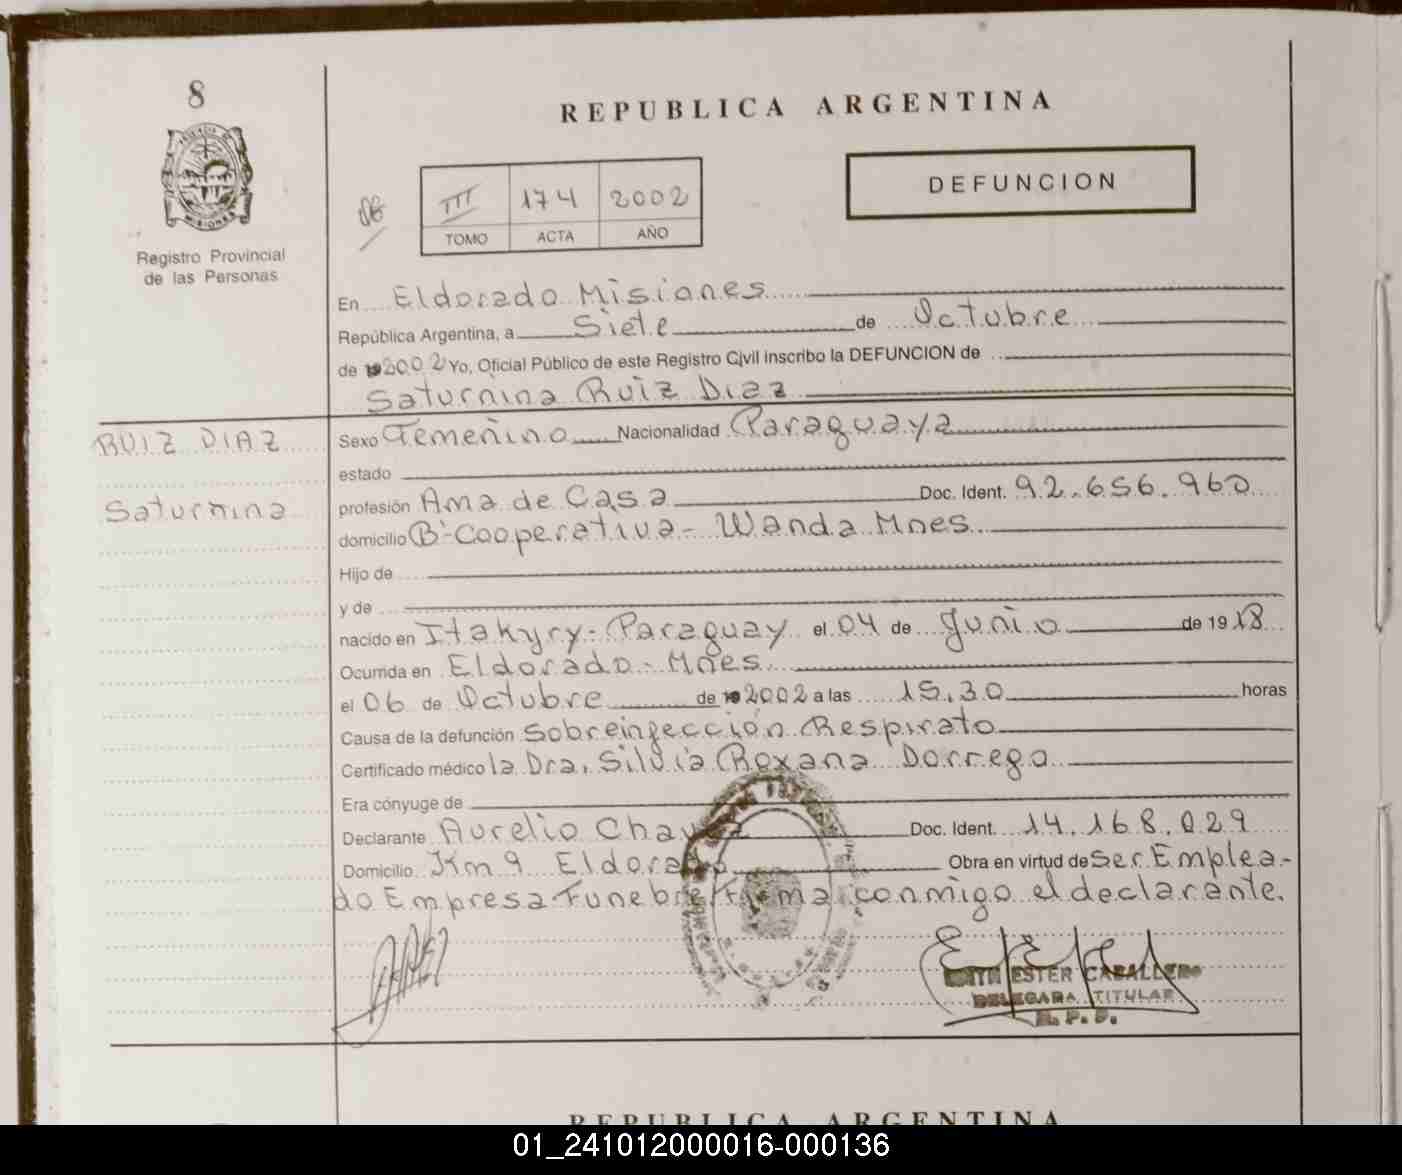 8
REPUBLICA ARGENTINA
DEFUNCION
III 174 2002
TOMO ACTA AÑO
Registro Provincial
de las Personas
MISIONES
En Eldorado Misiones
República Argentina, a Siete de Octubre
de 192002 Yo, Oficial Público de este Registro Civil inscribo la DEFUNCION de
Saturnina Ruiz Diaz
RUIZ DIAZ
Saturnina
Sexo Femeñino Nacionalidad Paraguaya
estado
profesión Ama de Casa Doc. Ident. 92.656.960
domicilio Bº Cooperativa - Wanda Mnes
Hijo de
y de
nacido en Itakyry - Paraguay el 04 de Junio de 19 18
Ocurrida en Eldorado - Mnes
el 06 de Octubre de 192002 a las 15.30 horas
Causa de la defunción Sobreinfección Respirato
Certificado médico la Dra. Silvia Roxana Dorrego
Era cónyuge de
Declarante Aurelio Doc. Ident. 14.168.029
Domicilio Km 9 Eldorado Obra en virtud de Ser Emplea-
do Empresa Funebre Firma conmigo el declarante.
EDITH ESTER CABALLERO
DELEGADA TITULAR
R. P. P.
REPUBLICA ARGENTINA
01_241012000016-000136